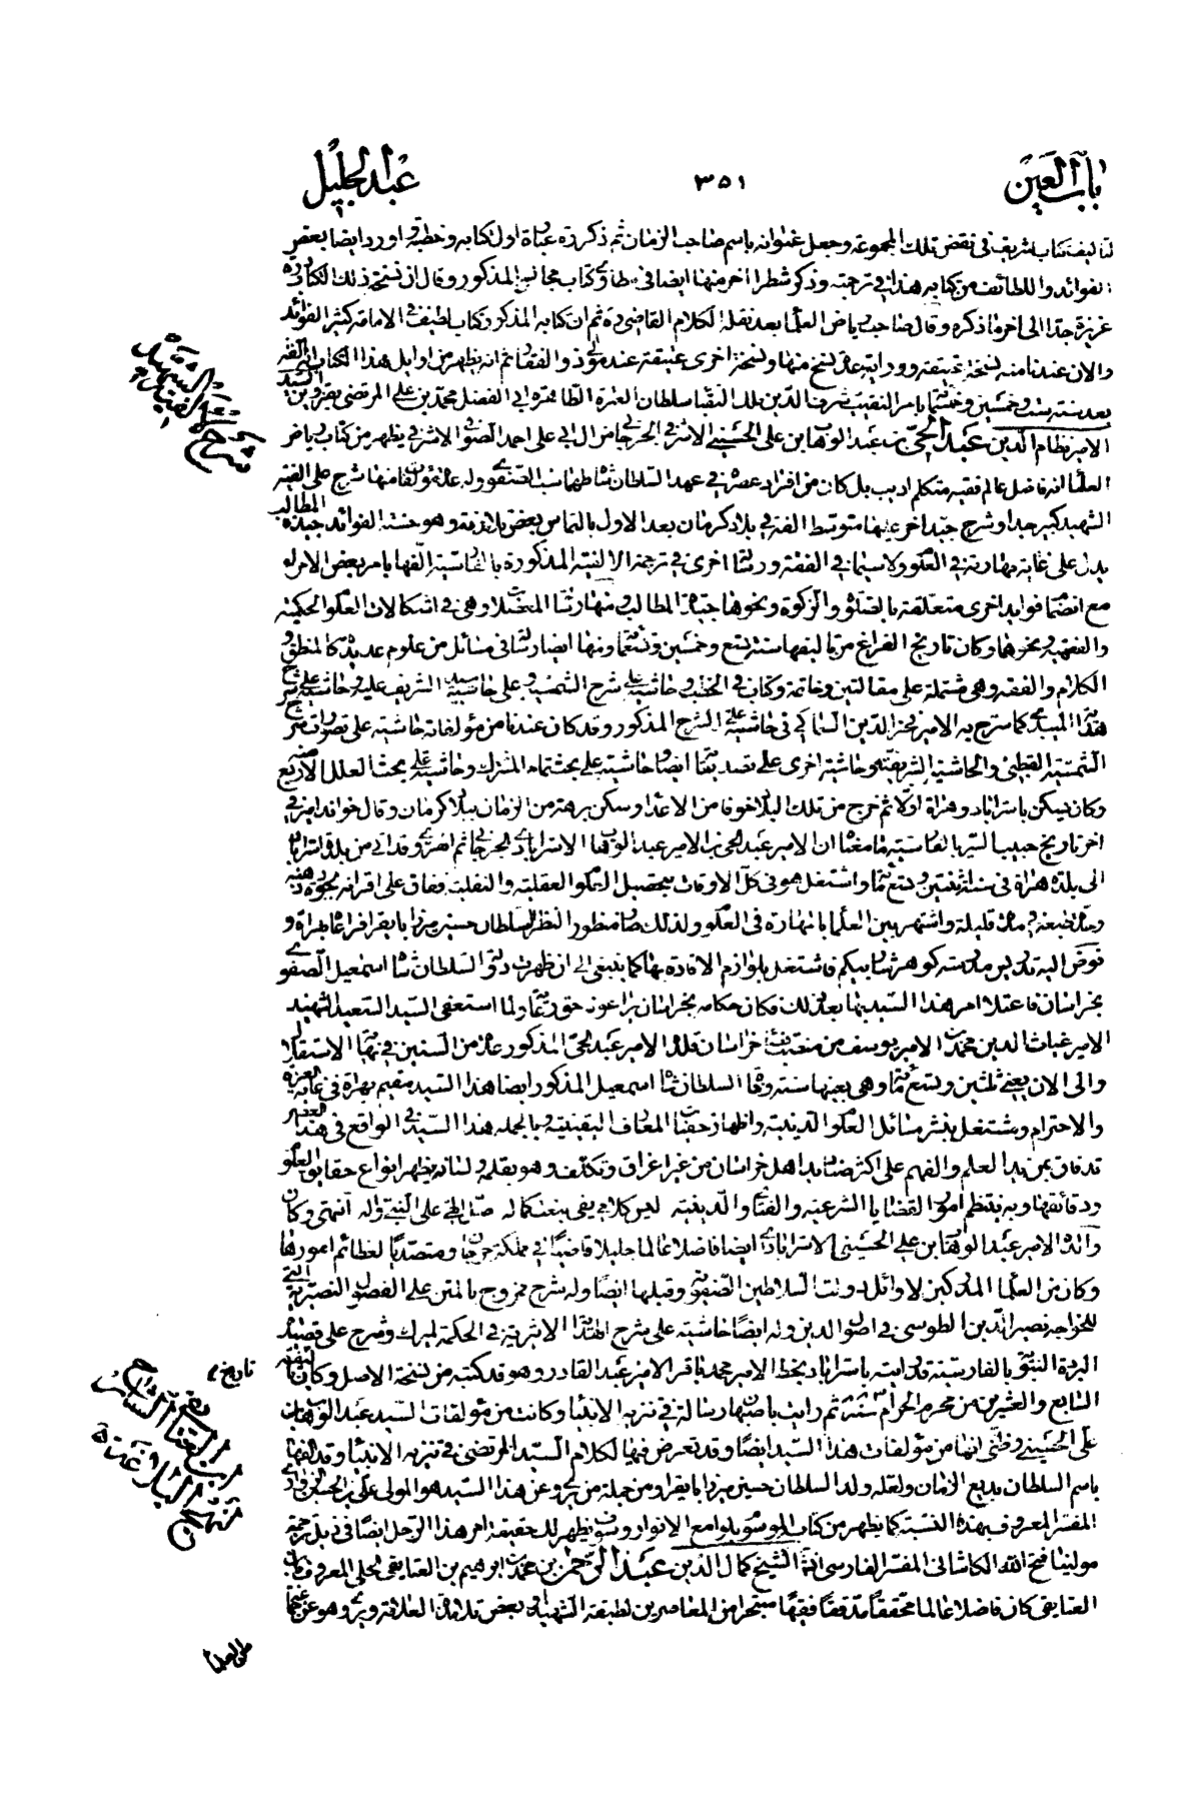 باب العين
٣٥١
عبد الجليل
كتاب شريف في نقض تلك المجموعة وجعل عنوانه باسم صاحب الزمان ثم ذكر ره عبارة اول كتابه وخطبته واورد ايضا بعض
الفوائد واللطائف من كتابه هذا في ترجمته وذكر شطرا اخر منها ايضا في كتاب مجالس المذكور وقال ان نسخة ذلك الكتاب
عزيزة جدا الى اخر ما ذكره وقال صاحب رياض العلماء بعد نقله لكلام القاضي ره ثم ان كتابه المذكور كتاب لطيف في الامامة كثير الفوائد
والان عندنا منه نسخة عتيقة ورايت عدة نسخ منها ونسخة اخرى عتيقة عند ثم انه يظهر من اوايل هذا الكتاب انه الفه
بعد سنة ست وخمسين وخمسمائة بامر النقيب شرف الدين ملك النقباء سلطان العترة الطاهرة ابي الفضل محمد بن علي المرتضى بقزوين
السيد
الامير نظام الدين عبد الحي بن عبد الوهاب بن علي الحسيني الاشرفي الجرجاني يظهر من كتاب رياض
العلماء انه فاضل عالم فقيه متكلم اديب بل كان من افراد عصره في عهد السلطان شاه طهماسب الصفوي وله عدة مؤلفات منها شرح على الفية
الشهيد كبير جدا وشرح جيد اخر عليها متوسط الفه في بلاد كرمان بعد الاول بالتماس بعض تلامذته وهو حسنة الفوائد جيدة المطالب
يدل على غاية مهارته في العلوم ولا سيما في الفقه ورسالة اخرى في ترجمة الالفية المذكورة بالفارسية الفها بامر بعض الامراء
مع انضمام فوايد اخرى متعلقة بالصلوة والزكوة ونحوها جيدة المطالب ومنها رسالة المعضلات وهي في اشكالات العلوم الحكمية
والفقهية ونحوها وكان تاريخ الفراغ من تاليفها سنة تسع وخمسين وتسعمائة ومنها ايضا رسالة في مسائل من علوم عديدة كالمنطق و
الكلام والفقه وهي مشتملة على مقالتين وخاتمة وكتاب في وحاشية على شرح الشمسية وعلى حاشية السيد الشريف عليه وحاشية على شرح
هداية الميبدي كما صرح به الامير فخر الدين السماكي في حاشيته على الشرح المذكور وقد كان عندنا من مؤلفاته حاشية على تصورات شرح
الشمسية القطبي والحاشية الشريفية وحاشية اخرى على تصديقاته ايضا وحاشية على بحث المشترك وحاشية على بحث العلل الاربع منه
وكان يسكن باسترآباد وهراة اولا ثم خرج من تلك البلاد خوفا من الاعداء وسكن برهة من الزمان ببلاد كرمان وقال خواند امير في
اخر تاريخ حبيب السير بالفارسية ما معناه ان الامير عبد الحي بن الامير عبد الوهاب الاسترابادي الجرجاني ثم الهروي قد اتى من بلدة استراباد
الى بلدة هراة في سنة اثنتين وتسعمائة واشتغل هو في كل الاوقات بتحصيل العلوم العقلية والنقلية ففاق على اقرانه بجودة ذهنه
وحدة طبعه في مدة قليلة واشتهر بين العلماء بالمهارة في العلوم ولذلك صار منظورا لنظر السلطان حسين ميرزا بايقرا فراعاه بهراة و
فوض اليه تدريس مدرسة كوهرشاد بيكم فاشتغل بلوازم الافادة بها كما ينبغي الى ان ظهرت دولة السلطان شاه اسمعيل الصفوي
بخراسان فاعتلا امر هذا السيد بها بعد ذلك فكان حكامه بخراسان يراعون حق رعايته ولما استعفى السيد السعيد الشهيد
الامير غياث الدين محمد بن الامير يوسف من منصب خراسان قلد الامير عبد الحي المذكور عدة من السنين في نهاية الاستقلال
والى الان يعني ثلثين وتسعمائة وهي بعينها سنة وفاة السلطان شاه اسمعيل المذكور ايضا هذا السيد مقيم بهراة في غاية العزة
والاحترام ويشتغل بنشر مسائل العلوم الدينية واظهار حقيات المعارف اليقينية وبالجملة هذا السيد في الواقع في هذا العصر
قد فاق بمزيد العلم والفهم على اكثر اهل خراسان من غير اغراق وتكلف وهو بقلمه ولسانه يظهر انواع حقايق العلوم
ودقائقها وبه ينتظم امور القضايا الشرعية والفتاوى الدينية ليس كلامي يفي بنعت كماله صلى الهي على النبي وآله انتهى وكان
والده الامير عبد الوهاب بن علي الحسيني الاسترابادي ايضا فاضلا عالما جليلا قاضيا في مملكة جرجان ومتصديا لعظائم امورها
وكان من العلماء المدركين لاوائل دولة السلاطين الصفوية وقبلها ايضا وله شرح ممزوج بالمتن على الفصول النصيرية التي
للخواجه نصير الدين الطوسي في اصول الدين وله ايضا حاشية على شرح الهداية الاثيرية في الحكمة لميرك وشرح على قصيدة
البردة النبوية بالفارسية قد رايته باستراباد بخط الامير محمد باقر الامير عبد القادر وهو قد كتبه من نسخة الاصل وكان تاريخ تاليفه
السابع والعشرين من محرم الحرام سنة ثم رايت باصبهان رسالة في تنزيه الانبياء وكانت من مؤلفات السيد عبد الوهاب بن
علي الحسيني وظني انها من مؤلفات هذا السيد ايضا وقد تعرض فيها لكلام السيد المرتضى في تنزيه الانبياء وقد الفها
باسم السلطان بديع الزمان ولعله ولد السلطان حسين ميرزا بايقرا ومن جملة من هذا السيد هو المولى علي بن الحسن الزواري
المفسر المعروف بهذه النسبة كما يظهر من كتابه الموسوم بلوامع الانوار وسوف يظهر لك حقيقة امر هذا الرجل ايضا في ذيل ترجمة
مولينا فتح الله الكاشاني المفسر الفارسي انشاء الله الشيخ كمال الدين عبد الرحمن بن محمد بن ابرهيم بن العتايقي الحلي المعروف بابن
العتايقي كان فاضلا عالما محققا مدققا فقيها متبحرا من المعاصرين لطبقة الشهيد او بعض تلامذة العلامة وهو من
شرح الفية الشهيد
تاريخ
ابن العتايقي الشارح نهج البلاغة
علماء